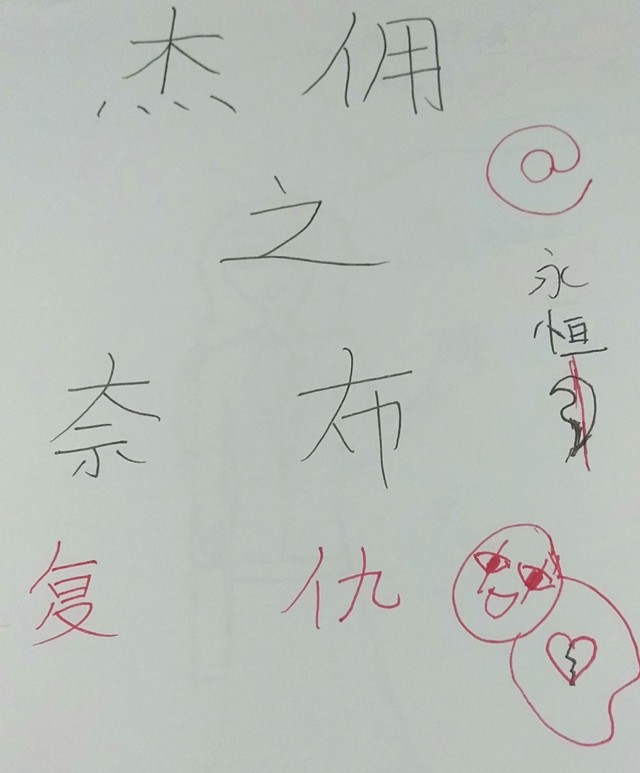 杰佣
之
奈布
复仇
@
永恒